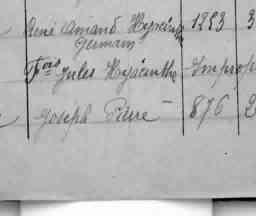 René Amand Hyacinthe 1223 3
Germain
Fois Jules Hyacinthe Improp
Joseph Pierre 876 2